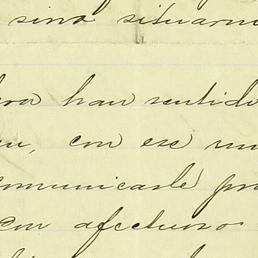 sino situarn
ora han sentido
con ese mu
comunicarle pro
con afectuoso